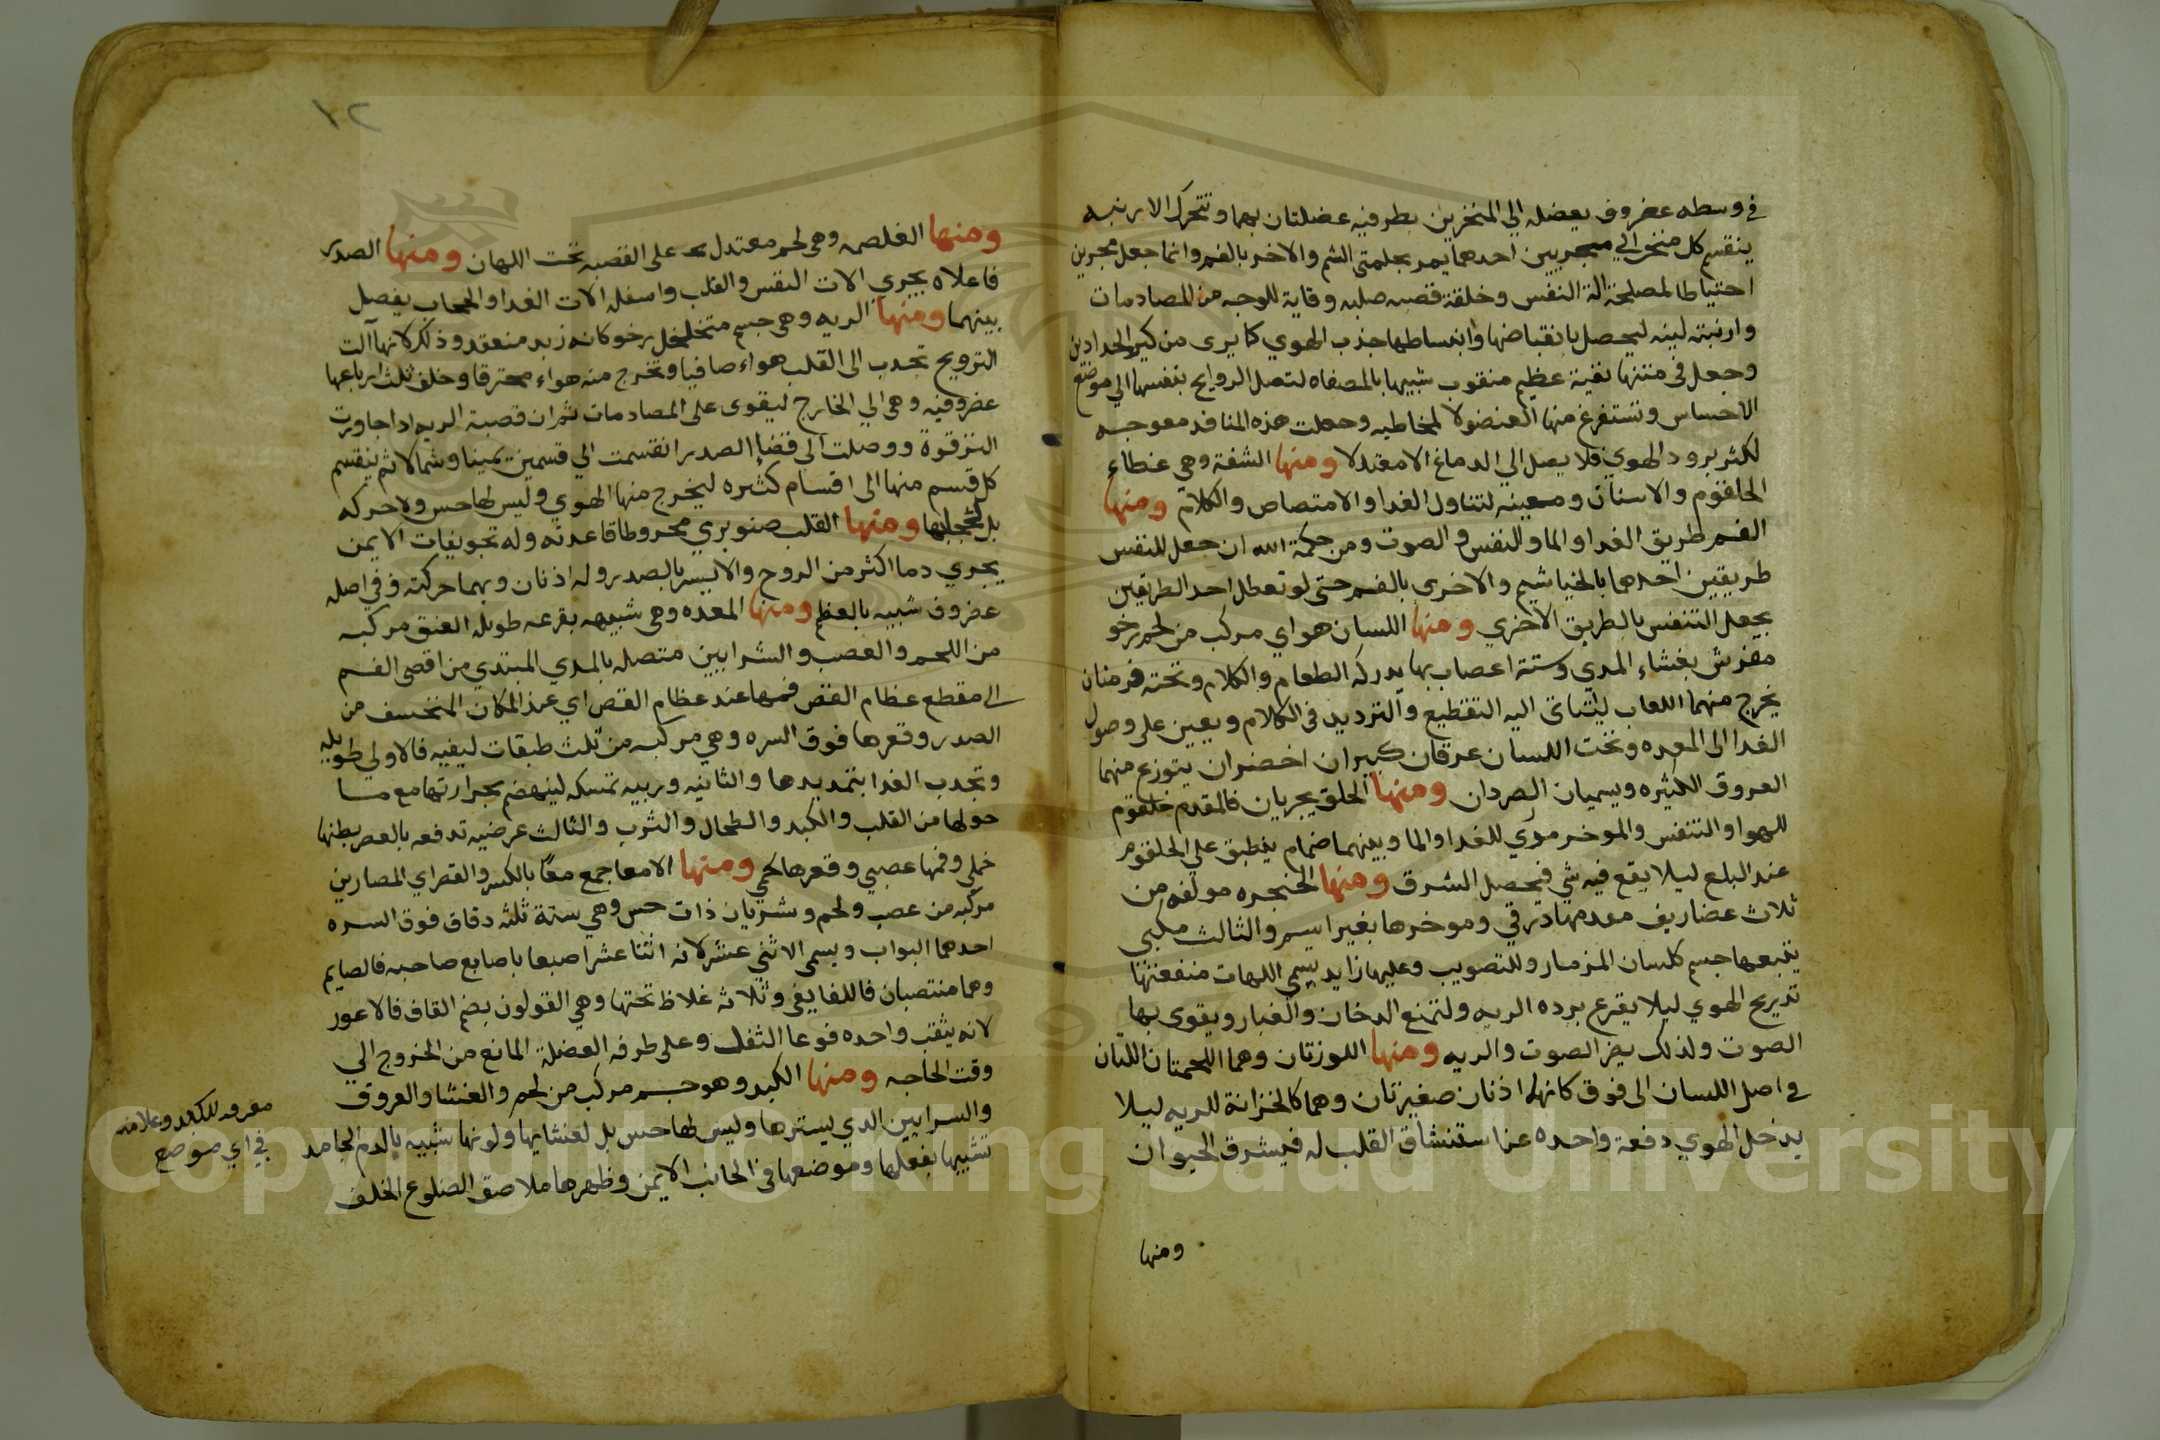 في وسطه غضروف يفضله الي المنخرين بطرفيه عضلتان بهما وتتحرك الارنبه
ينقسم كل منخر الي مجريين احدهما يمر بحلمتي الشم والاخر بالفم وانما جعل مجرين
احتياطا لمصلحة الة النفس وخلقة قصبه صلبه وقاية للوجه من المصادمات
وارنبته لينه ليحصل بانقباضها وانبساطها جذب الهوي كما يرى من كير الحدادين
وجعل في متنها نقية عظيم منقوب شبيها بالمصفاه لتصل الروايح بنفسها الي موضع
الاحساس وتستفرغ منها الفضولا لمخاطيه وجعلت هذه المنافد معوجه
لكثر برود الهوي فلا يصل الي الدماغ الا معتدلا ومنها الشفة وهي غطاء
الحلقوم والاسنان ومعينه لتناول الغدا والامتصاص والكلام ومنها
الفم طريق الغدا والما والنفس و الصوت ومن حكمة الله ان جعل للنفس
طريقين احدهما بالخياشيم والاخرى بالفم حتى لو تعطل احد الطريقين
يجعل التنفس بالطريق الاخري ومنها اللسان هو اي مركب من لحم رخو
مفرش بغشاء المدي وستة اعصاب بها يدركه الطعام والكلام وتحته فرمنان
يخرج منهما اللعاب ليتأتى اليه التقطيع والترديد في الكلام ويعين على وصول
الغدا الى المعده وتحت اللسان عرقان كبيران اخضران يتوزع منهما
العروق الكثيره ويسميان الصردان ومنها الحلق يجريان فالمقدم حلقوم
للهوا والتنفس والموخر مدي للغدا والما وبينهما ضمام ينطبق علي الحلقوم
عند البلع ليلا يقع فيه شي فيحصل الشرق ومنها الحنجره مولفه من
ثلاث غضاريف مقدمها درقي وموخرها بغير اسم والثالث مكبي
يتبعها جسم كلسان المزمار وللتصويب وعليها زايد يسمي اللهات منفعتها
تدريح الهوي ليلا يقرع برده الريه ولتمنع الدخان والغبار ويقوى بها
الصوت ولذلك يضر الصوت والريه ومنها اللوزتان وهما اللحمتان اللتان
في اصل اللسان الى فوق كانهما اذنان صغيرتان وهما كالخزانة للريه ليلا
يدخل الهوي دفعة واحده عند استنشاق القلب له فيشرق الحيوان
ومنها
١٢
ومنها الغلصمه وهي لحم معتدل على القصبه تحت اللهان ومنها الصدر
فاعلاه يجري الات النفس والقلب واسفله الات الغدا والحجاب يفصل
بينهما ومنها الريه وهي جسم متخلخل رخو كانه زبد منعقد وذلك لانها آلت
الترويح تجدب الى القلب هواء صافيا وتخرج منه هواء محترقا وخلق ثلث ارباعها
غضروفيه وهي الي الخارج ليقوى على المصادمات ثم ان قصبة الريه ادا جاورت
الترقوة ووصلت الى فضاء الصدر انقسمت الي قسمين يمينا وشمالا ثم ينقسم
كل قسم منها الى اقسام كثيره ليخرج منها الهوي وليس لها حس ولا حركه
بل لحجابها ومنها القلب صنوبري مخروطا قاعدته وله تجويفات الايمن
يجري دما اكثر من الروح والايسر بالصدر وله اذنان وبهما حركته وفي اصله
غضروف شبيه بالعظم ومنها المعده وهي شبيهه بقرعه طويله العنق مركبه
من اللحم والعصب والشرايين متصله بالمدي المبتدي من اقصى الفم
الى مقطع عظام القص فمها عند عظام القص اي عند المكان المنخسف من
الصدر وقعرها فوق السره وهي مركبه من ثلث طبقات ليفيه فالاولي طويله
وتجدب الغدا بتمديدها والثانيه وربيه تمسكه لينهضم بحرارتها مع ما
حولها من القلب والكبد والطحال والثرب والثالث عرضيه تدفعه بالعصر بطنها
خملي وفمها عصبي وقعرها لحمي ومنها الامعا جمع معا بالكسر والقصر اي المصارين
مركبه من عصب ولحم وشريان ذات حس وهي ستة ثلثه دقاق فوق السره
احدهما البواب ويسمي الاثني عشر لانه اثنا عشر اصبعا باصابع صاحبه فالصايم
وهما منتصبان فاللفايفي وثلاثه غلاظ تحتها وهي القولون بضم القاف فالاعور
لانه بثقب واحده فوعا الثفل وعلى طرفه العضلة المانع من الخروج الي
وقت الحاجه ومنها الكبد وهو جسم مركب من لحم والغشا والعروق
والسرايين الدي يسترها وليس لها حس بل لغشايها ولونها شبيه بالدم الجامد
تشبيها بفعلها وموضعها في الجانب الايمن وظهرها ملاصق الضلوع الخلف
معرفه للكبد وعلامته
في اي موضع
Copyright © King Saud University